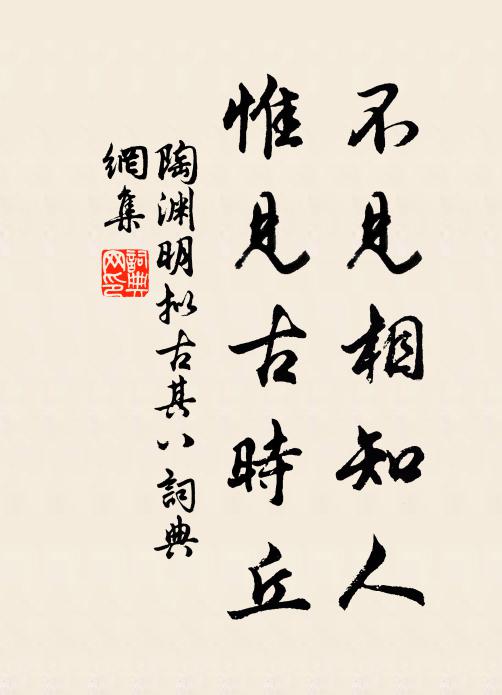 不見相知人
惟見古時丘
陶淵明擬古其八 詞典
網集
詞典
网印